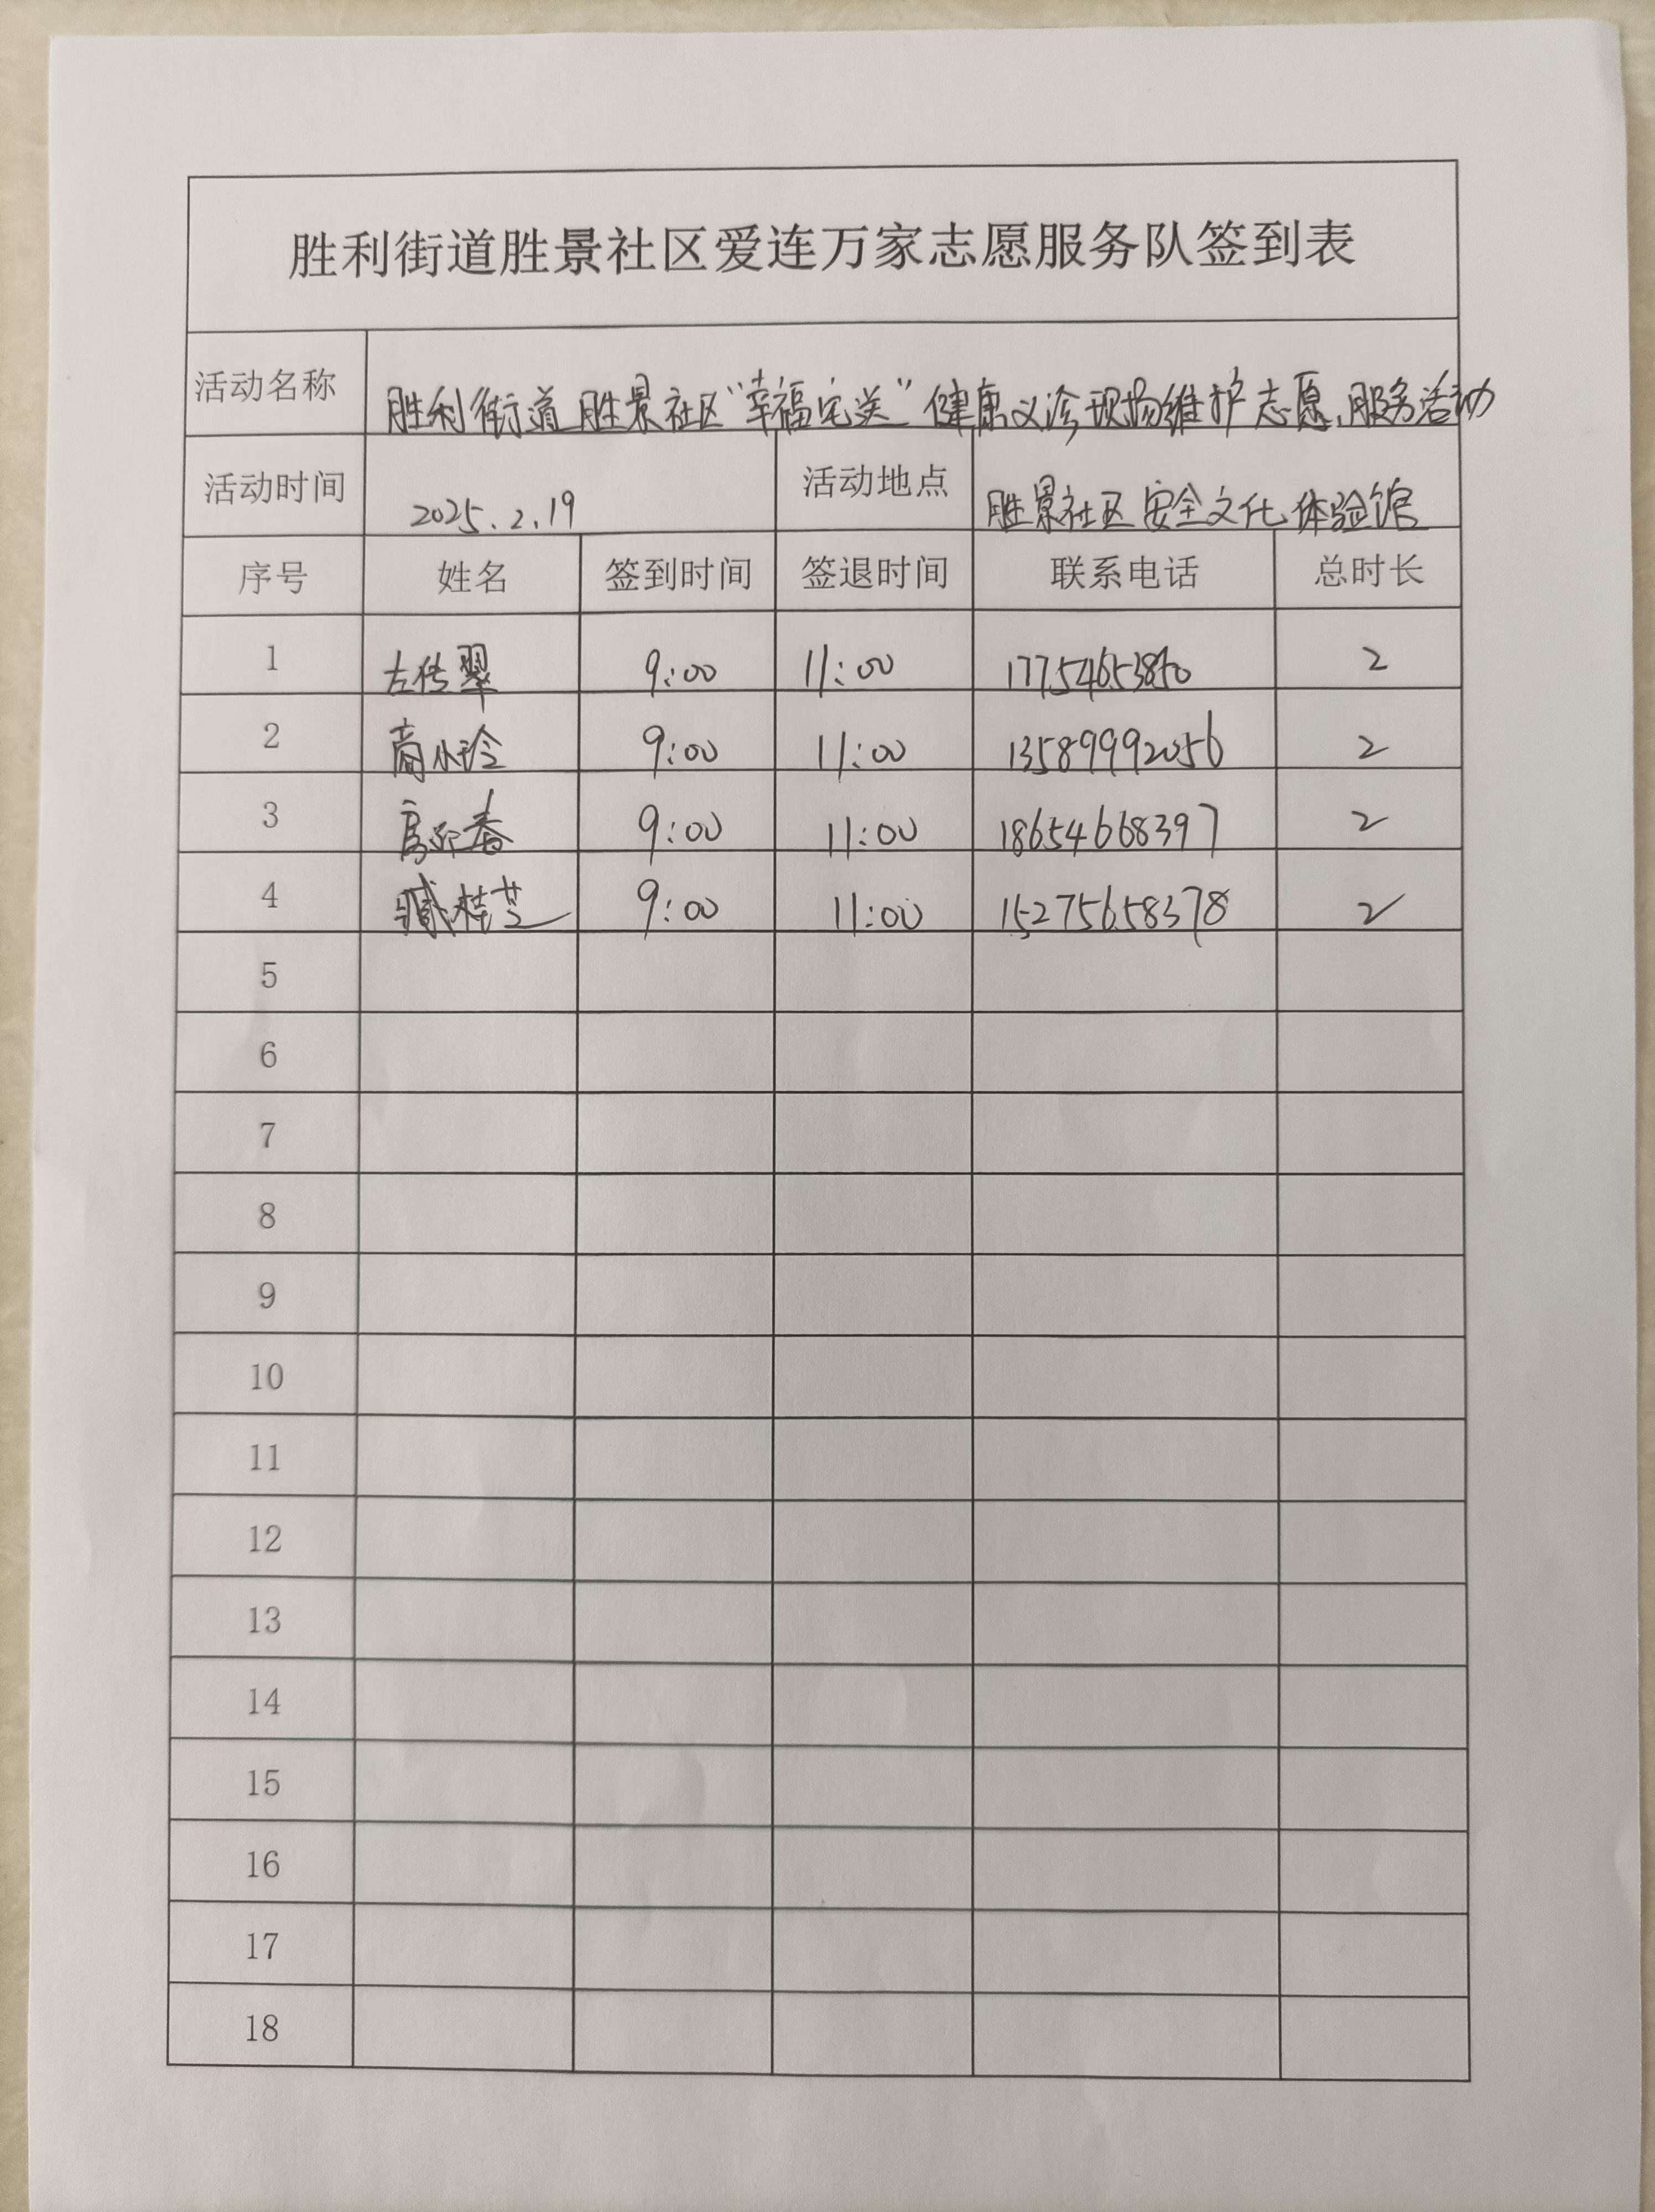 胜利街道胜景社区爱连万家志愿服务队签到表
活动名称 胜利街道胜景社区“幸福宅送”健康义诊现场维护志愿服务活动
活动时间 2025.2.19 活动地点 胜景社区安全文化体验馆
序号 姓名 签到时间 签退时间 联系电话 总时长
1 左传翠 9:00 11:00 17754653850 2
2 商小玲 9:00 11:00 13589992056 2
3 房迎春 9:00 11:00 18654668397 2
4 臧桂芝 9:00 11:00 15275658378 2
5
6
7
8
9
10
11
12
13
14
15
16
17
18